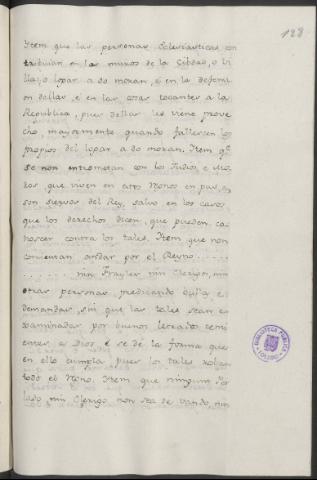 128
Item que las personas Eclesiasticas, con
tribuian en los muros de la Cibdad, o Vi
lla, o logar a do moran, é en la defensi
on dellas, é en las cosas tocantes a la
Republica, pues dellas les viene prove
cho, mayormente quando fallescen los
propios del logar a do moran. Item q.e
se non entrometan con los Judios, e Mo
ros, que viven en estos Regnos en paz, é
son siervos del Rey, salvo en los casos
que los derechos dicen, que pueden, co
noscer contra los tales. Item que non
consientan andar por el Reyno . . . . . .
. . . . . . . nin Frayles, nin Clerigos, nin
otras personas, predicando bullas, e
demandas, sin que las tales sean ex
xaminadas por buenos letrados temi
entes a Dios, é se dé la forma que
en ello cumpla, pues los tales roban
todo el Regno. Item que ningun Per
lado, nin Clerigo non sea de vando, nin
BIBLIOTECA PUBLICA
TOLEDO